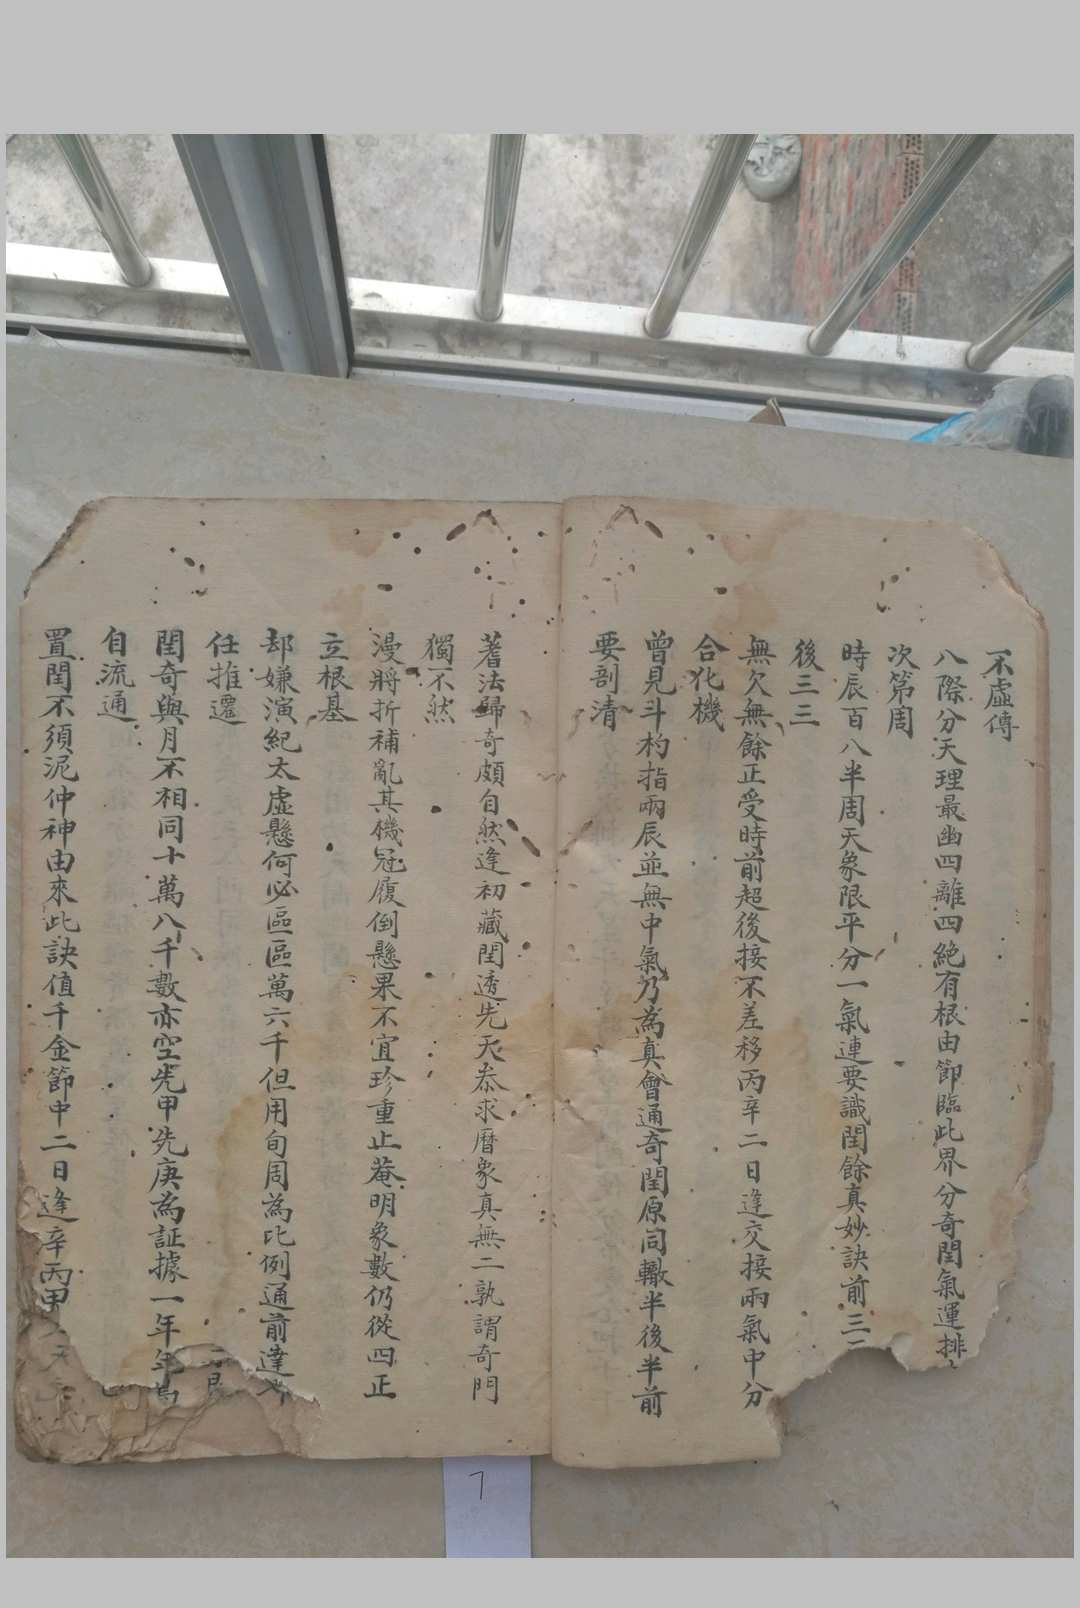 不虛傳
八際分天理最幽四離四絕有根由節臨此界分奇閏氣運排
次第周
時辰百八半周天象限平分一氣連要識閏餘真妙訣前三
後三三
無欠無餘正受時前超後接不差移丙辛二日逢交接兩氣中分
合化機
曾見斗杓指兩辰並無中氣乃為真會通奇閏原同轍半後半前
要剖清
蓍法歸奇頗自然逢初藏閏透先天叅求曆象真無二孰謂奇門
獨不然
漫將折補亂其機冠履倒懸果不宜珍重止菴明象數仍從四正
立根基
却嫌演紀太虛懸何必區區萬六千但用旬周為比例通前達
任推遷
閏奇與月不相同十萬八千數亦空先甲先庚為証據一年年
自流通
置閏不須泥仲神由來此訣值千金節中二日逢辛丙甲
7